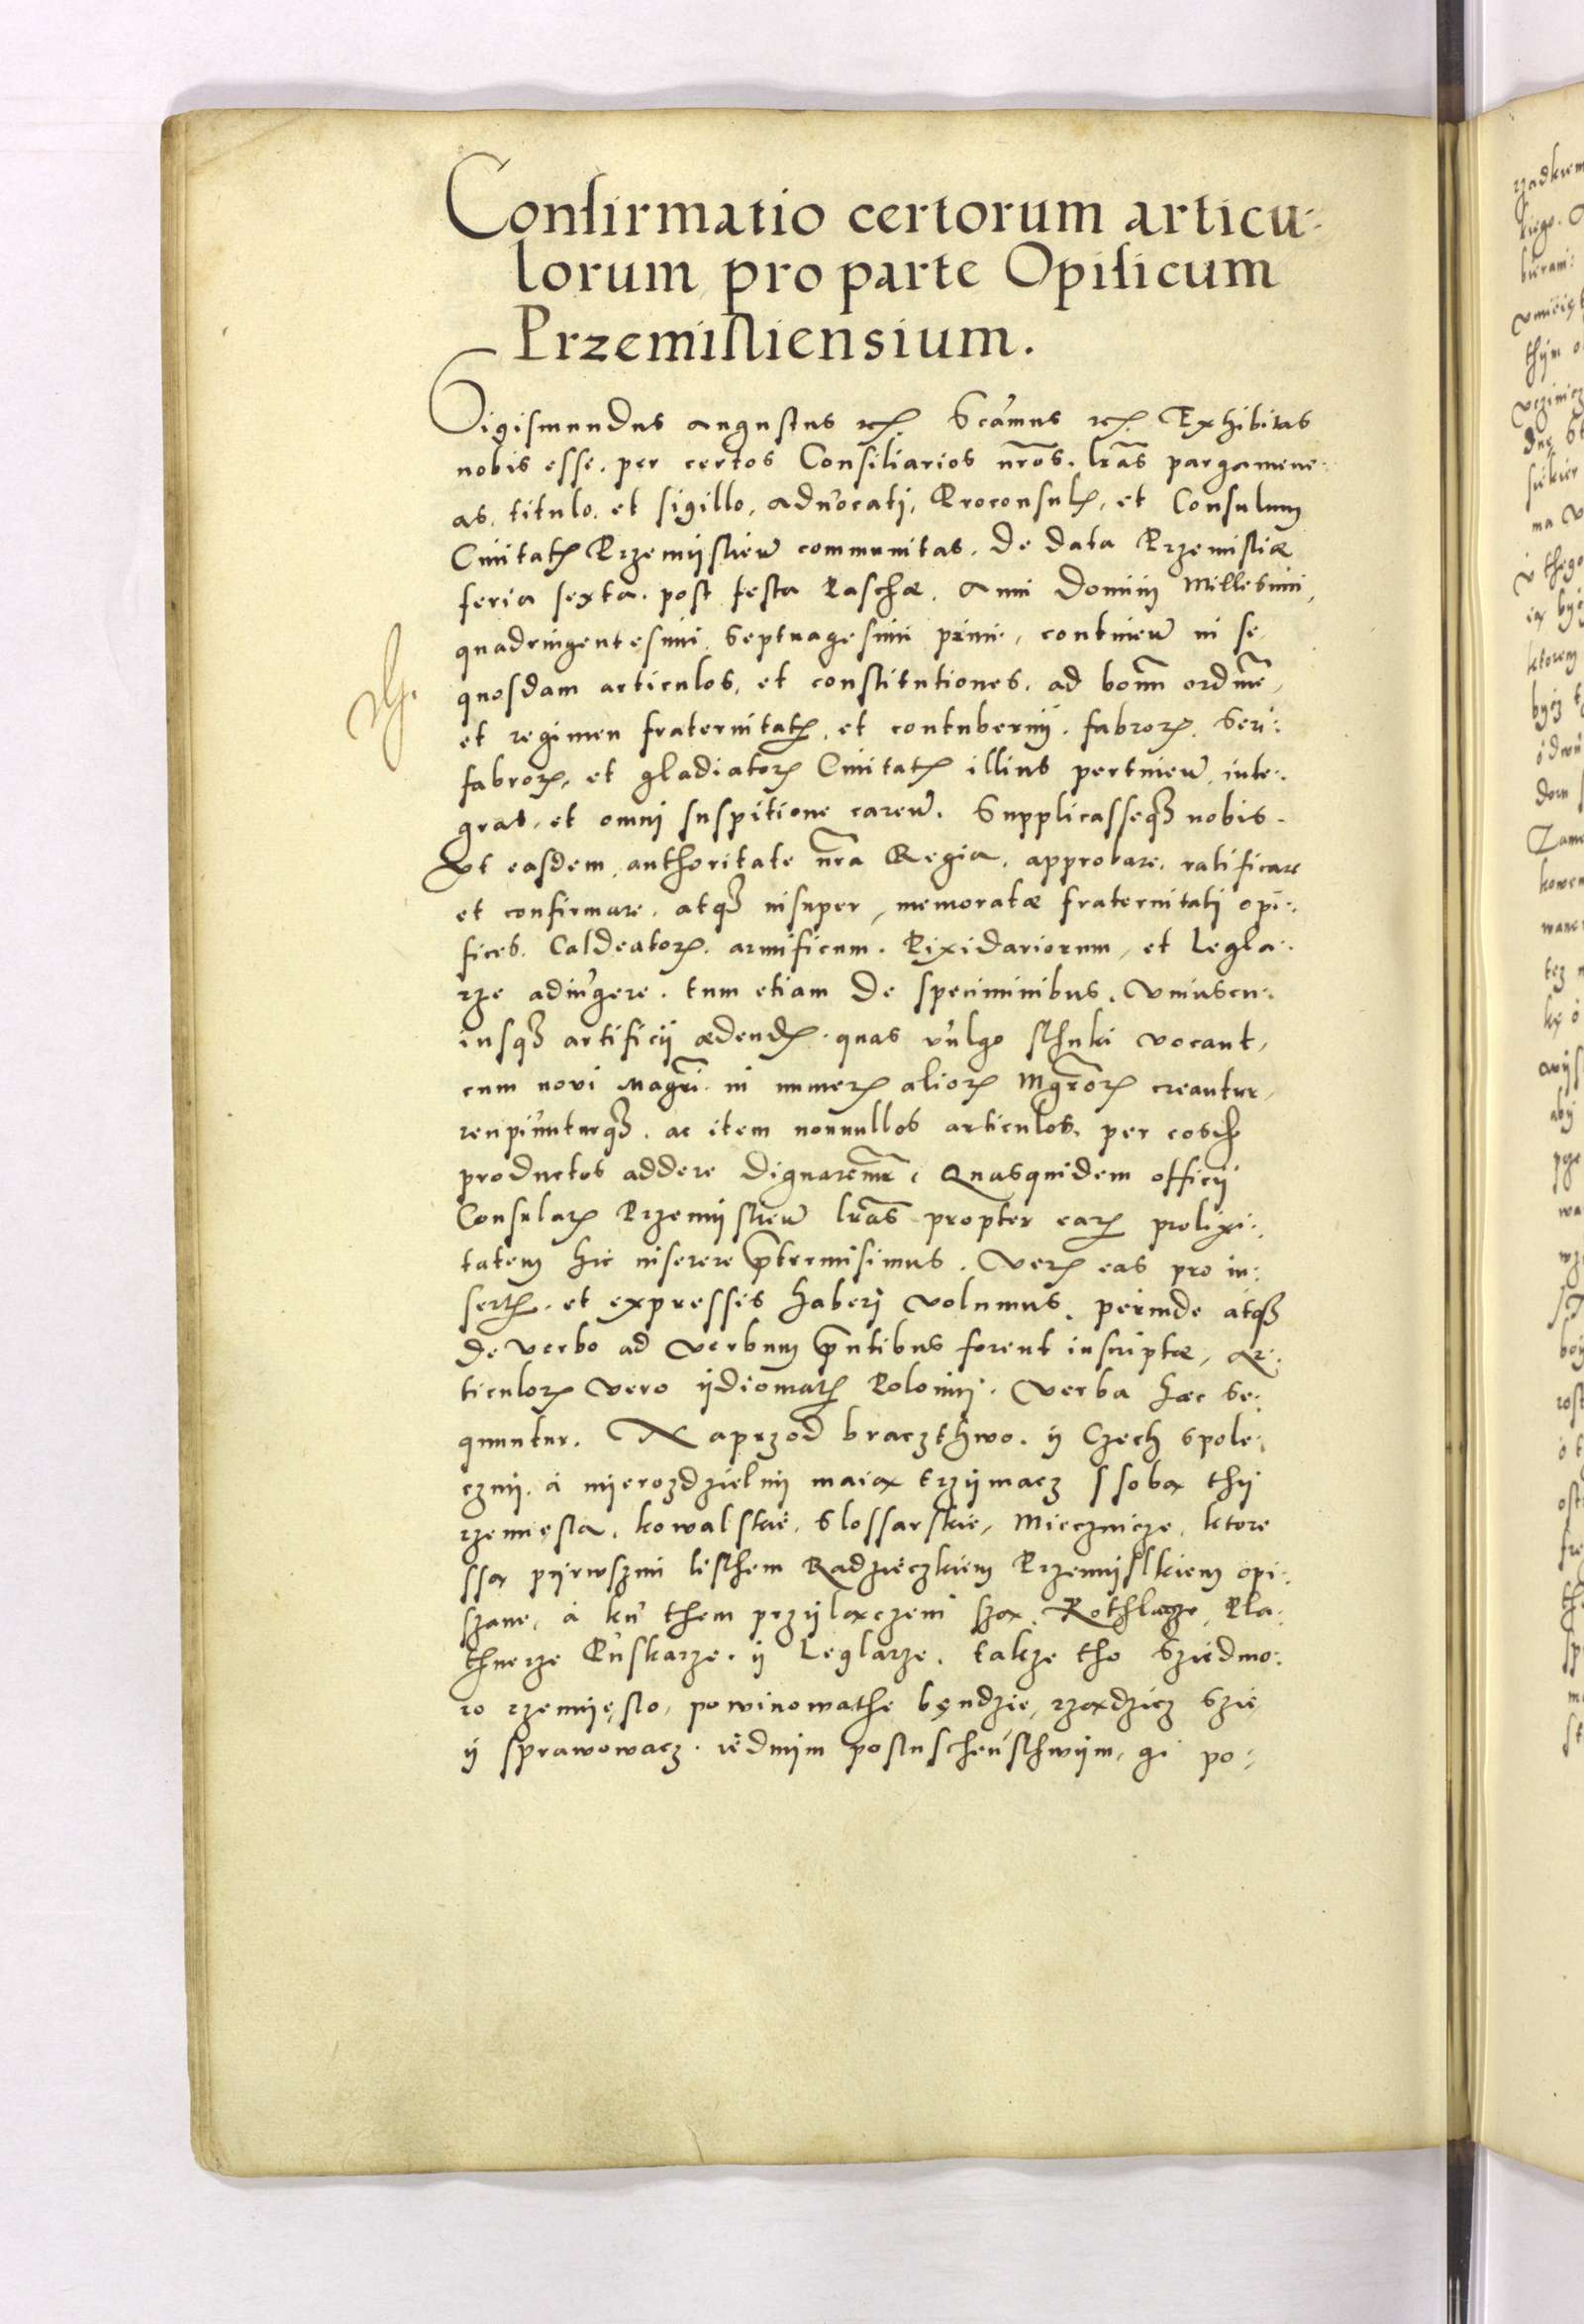 Confirmatio certorum articu⸗
lorum pro parte Opificum
Przemisliensium.
Sigismundus augustus etc. Scamus etc. Exhibitas
nobis esse. per certos Consiliarios nros. lras pargamene⸗
as, titulo. et sigillo, advocati, Proconsulis, et Consulum
Civitatis Przemyslien communitas. de data Przemisliæ
feria sexta. post festa Paschæ. Anni Domini Millesimi,
quadringentesimi septuagesimi primi, continen in se
quosdam articulos, et constitutiones. ad bonum ordinem,
et regimen fraternitatis, et contubernij. fabrorum. Seri⸗
fabrorum, et gladiatorum Civitatis illius pertinen, inte⸗
gras, et omni suspitione caren. Supplicasseque nobis.
Ut easdem, authoritate nra Regia. approbare. ratificare
et confirmare. atque insuper, memoratæ fraternitati opi⸗
fices. Caldeatorum. armificum. Pixidariorum, et Legla⸗
rze adiungere. tum etiam de speciminibus. Uniuscu⸗
iusque artificij ædendis. quas vulgo sthuki vocant,
cum novi Magri. in numerum aliorum Mgrorum creantur,
recipiunturque. ac item nonnullos articulos. per eosdem
productos addere dignaremur. Quasquidem officij
Consularis Przemyslien lras propter earum prolixi⸗
tatem hic inserere prtermisimus. Verum eas pro in⸗
sertis. et expressis haberi volumus. perinde atque
de verbo ad verbum pntibus forent inscriptæ, Ar⸗
ticulorum vero ijdiomatis Polonij. verba hæc se⸗
quuntur. Naprzod braczthwo. ÿ Czech spole⸗
cznÿ. á nÿerozdzielnÿ maią trzÿmacz s sobą thÿ
rzemięsla. kowalskie. Slossarskie, Miecznicze. ktore
są pÿrwszmi listhem Radzieczkiem Przemÿslkiem opi⸗
szane, á ku them przÿlączeni szą. Rothlarze, Pla⸗
thnerze Puskarze. ÿ Leglarze. takze tho Sziedmo⸗
ro rzemÿęslo, powinowathe będzie, rządzicz Szię
ÿ sprawowacz. iednÿm posluschenstwÿm, gi po⸗